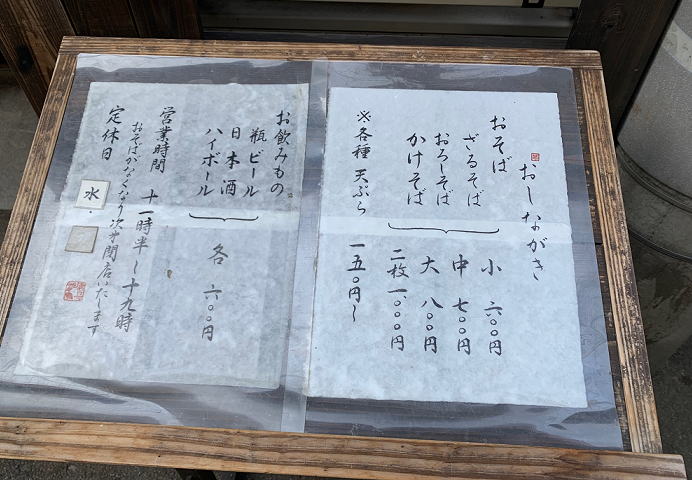 おしながき
おそば
ざるそば
おろしそば
かけそば
小 六〇〇円
中 七〇〇円
大 八〇〇円
二枚 一、〇〇〇円
※各種 天ぷら 一五〇円〜
お飲みもの
瓶ビール
日本酒
ハイボール
各 六〇〇円
営業時間 十一時半〜十九時
おそばがなくなり次第閉店いたします
定休日 水・